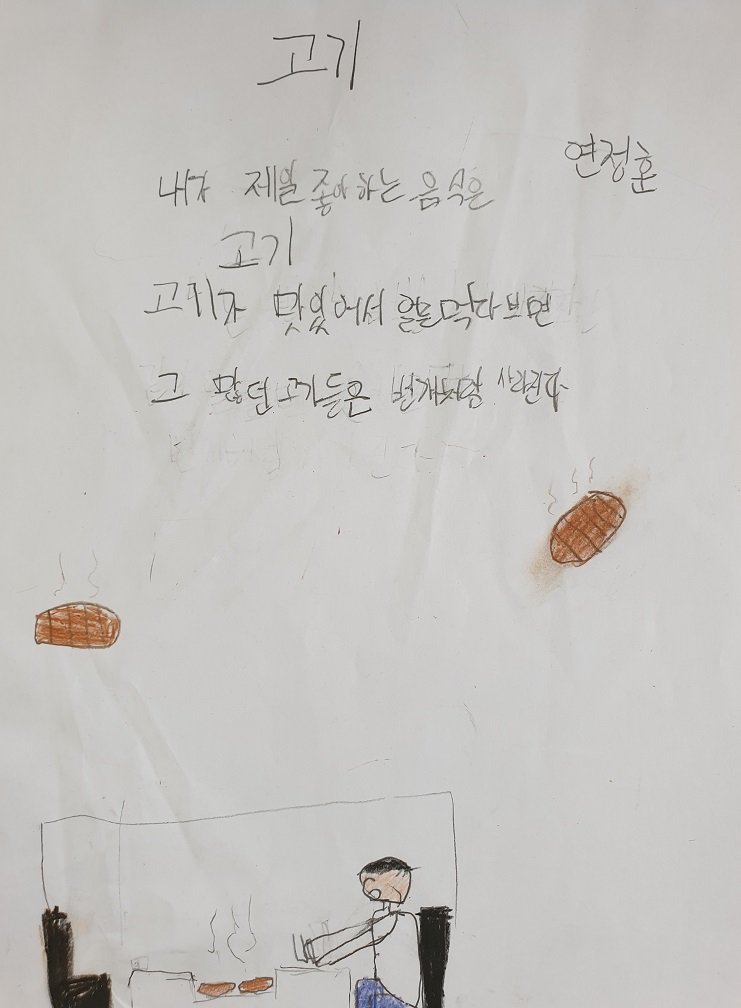 고기
연정훈
내가 제일 좋아하는 음식은
고기
고기가 맛있어서 얼른 먹다보면
그 많던 고기들은 번개처럼 사라진다